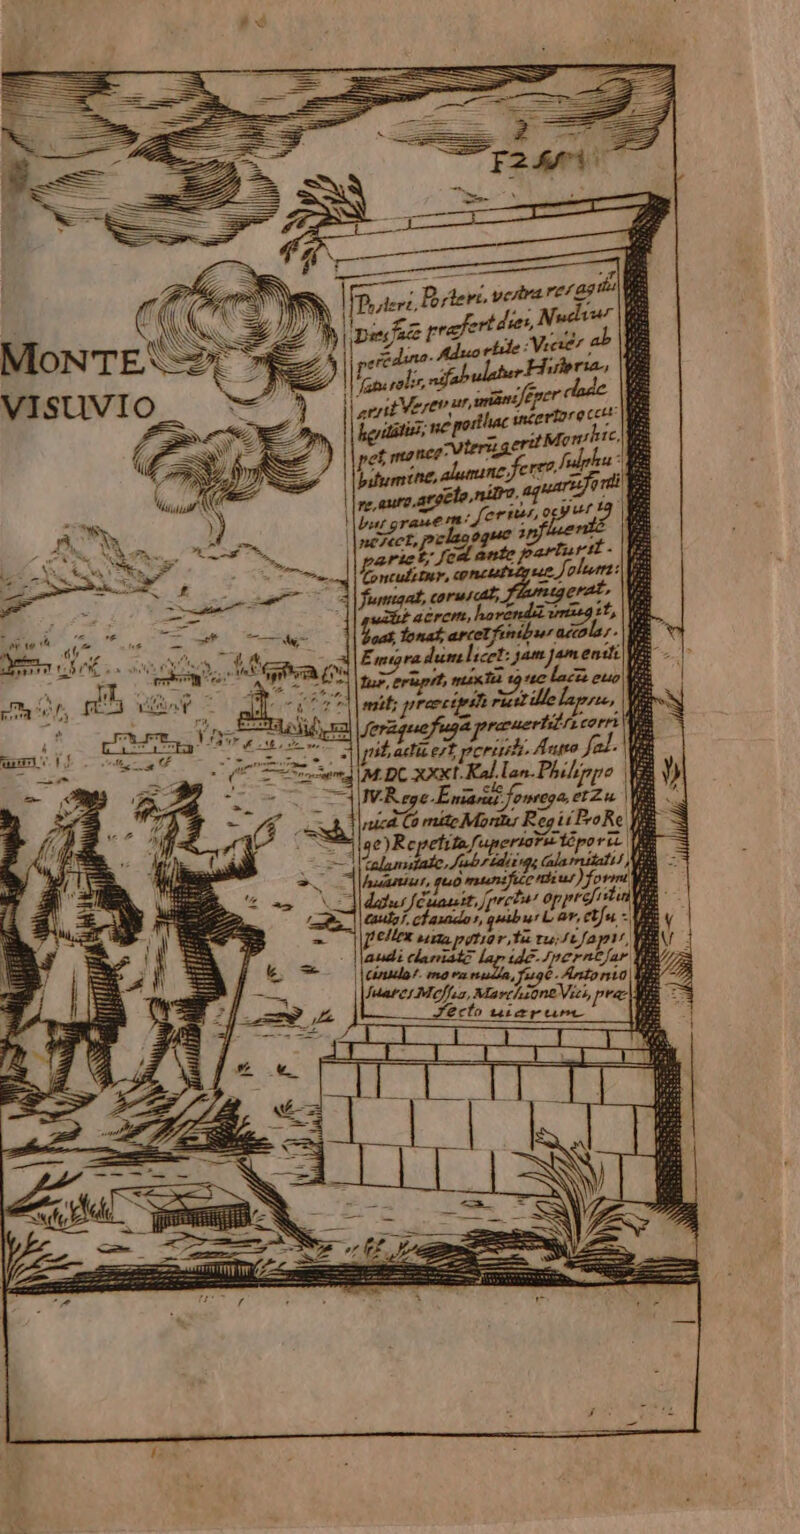 MONTE
VISUVIO
Posteri, Posteri, vestra res agitur
Dies facē præfert diei, Nudius
perēdino. Aduortite: Viciēs ab
satu solis, ni fabulatur Historia,
arsit Vesevus, semper clade
hęsitātiū; ne posthac incertos occu-
pet moneo. Vterū gerit Mons hic,
bitumine, alumine, ferro, sulphu-
re, auro, argēto, nitro, aquarū fonti
bus grauem: serius, ocyus ig
nescet, pelagoque influentē
pariet; sed ante parturit.
Concutitur, concutitque solum:
fumigat, coruscat, flammigerat,
quatit aerem, horrendū immugit,
boat, tonat, arcet finibus accolas.
Emigra dum licet: jam jam eniti
tur, erupit, mixtū igne lacū euo
mit; præcipiti ruit ille lapsu,
seraque fuga præuertit. Si corri
pit, actū est, periisti. Anno sal.
M.DC XXXI. Kal. Ian. Philippo
IV. Rege. Emanu. fonsega, et Zu
nica Co mite Montis Regii ProRe
ge) Repetita superiorū tēporū
calamitate, subsidiisq; Calamitatis
humanius, quo munificētius) formi
datus seruauit, spretus oppressit in
cautos, et auidos, quibus Lar, et su-
pellex uita potior, tū tu, si sapis,
audi clamātē lapidē. Sperne lar
cinulas. mora nulla, fuge. Antonio
Suares Messia, Marchione Vici, præ-
fecto uiarum